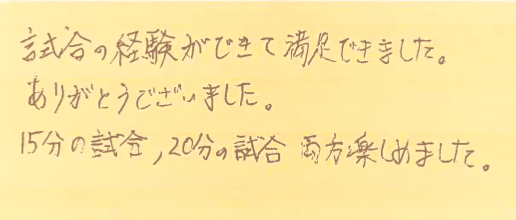 試合の経験ができて満足できました。
ありがとうございました。
15分の試合,20分の試合 両方楽しめました。